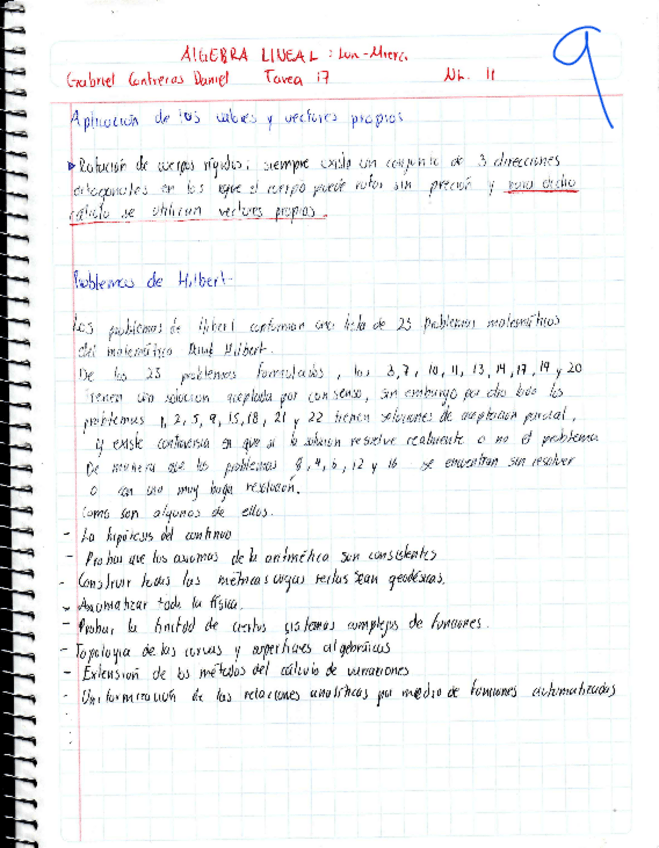 ALGEBRA LINEAL : Lun-Mierc.
9
Gabriel Contreras Daniel Tarea 17 NL. 11
Aplicación de los valores y vectores propios
Rotación de cuerpos rígidos: siempre existe un conjunto de 3 direcciones
ortogonales en las que el cuerpo puede rotar sin preción y para dicho
cálculo se utilizan vectores propios.
Problemas de Hilbert
Los problemas de Hilbert conforman una lista de 23 problemas matemáticos
del matemático David Hilbert.
De los 23 problemas formulados, los 3,7, 10, 11, 13, 14, 17, 19 y 20
tienen una solución aceptada por consenso, sin embargo por otro lado los
problemas 1, 2, 5, 9, 15, 18, 21 y 22 tienen soluciones de aceptación parcial,
y existe controversia en que si la solución resuelve realmente o no el problema
De manera que los problemas 8, 4, 6, 12 y 16 se encuentran sin resolver
o con una muy baja resolución.
Como son algunos de ellos.
- La hipótesis del continuo
- Probar que los axiomas de la aritmética son consistentes
- Construir todas las métricas cuyas rectas sean geodésicas.
- Axiomatizar toda la física.
- Probar la finitud de ciertos sistemas complejos de funciones.
- Topología de las curvas y superficies algebraicas
- Extensión de los métodos del cálculo de variaciones
- Uniformización de las relaciones analíticas por medio de funciones automatizadas